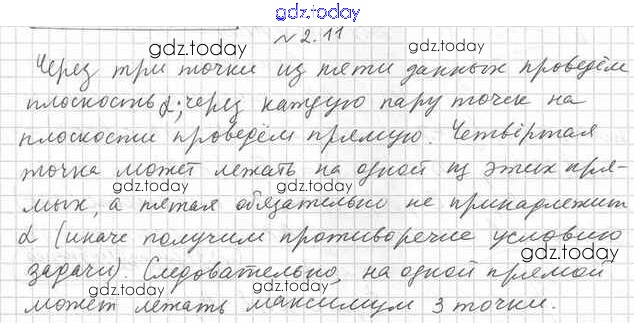 gdz.today
№ 2.11
gdz.today gdz.today
Через три точки из пяти данных проведём
плоскость α; через каждую пару точек на
gdz.today gdz.today
плоскости проведём прямую. Четвёртая
точка может лежать на одной из этих пря-
gdz.today gdz.today
мых, а пятая обязательно не принадлежит
α (иначе получим противоречие условию
gdz.today
задачи). Следовательно, на одной прямой
gdz.today gdz.today
может лежать максимум 3 точки.